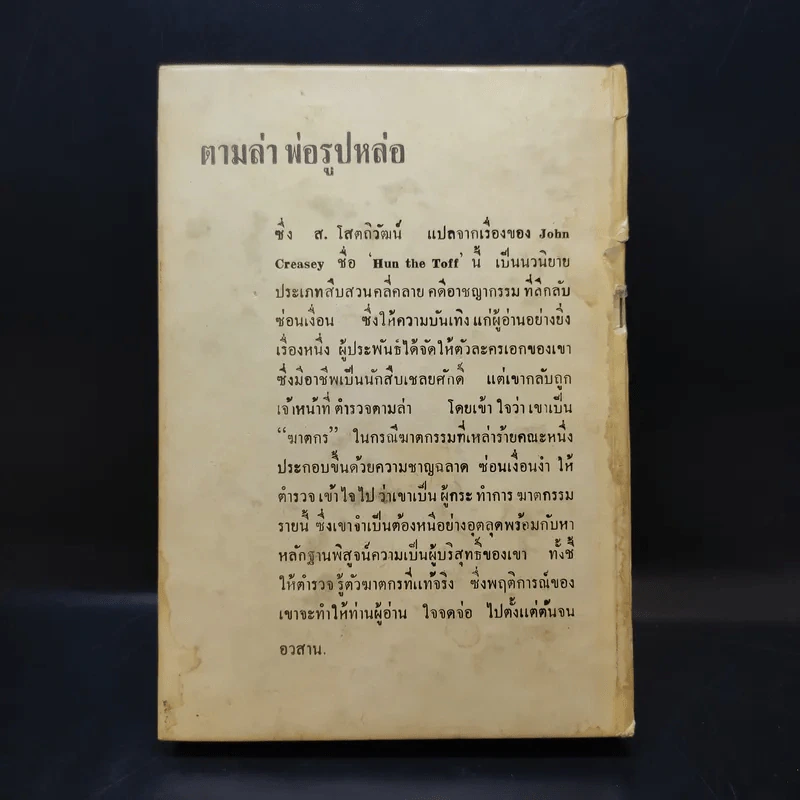 ตามล่า พ่อรูปหล่อ
ซึ่ง ส. โสตถิวัฒน์ แปลจากเรื่องของ John
Creasey ชื่อ ‘Hun the Toff’ นี้ เป็นนวนิยาย
ประเภทสืบสวนคลี่คลาย คดีอาชญากรรม ที่ลึกลับ
ซ่อนเงื่อน ซึ่งให้ความบันเทิง แก่ผู้อ่านอย่างยิ่ง
เรื่องหนึ่ง ผู้ประพันธ์ได้จัดให้ตัวละครเอกของเขา
ซึ่งมีอาชีพเป็นนักสืบเชลยศักดิ์ แต่เขากลับถูก
เจ้าหน้าที่ ตำรวจตามล่า โดยเข้า ใจว่า เขาเป็น
“ฆาตกร” ในกรณีฆาตกรรมที่เหล่าร้ายคณะหนึ่ง
ประกอบขึ้นด้วยความชาญฉลาด ซ่อนเงื่อนงำ ให้
ตำรวจ เข้าใจไป ว่าเขาเป็น ผู้กระ ทำการ ฆาตกรรม
รายนี้ ซึ่งเขาจำเป็นต้องหนีอย่างอุตลุดพร้อมกับหา
หลักฐานพิสูจน์ความเป็นผู้บริสุทธิ์ของเขา ทั้งชี้
ให้ตำรวจ รู้ตัวฆาตกรที่แท้จริง ซึ่งพฤติการณ์ของ
เขาจะทำให้ท่านผู้อ่าน ใจจดจ่อ ไปตั้งแต่ต้นจน
อวสาน.